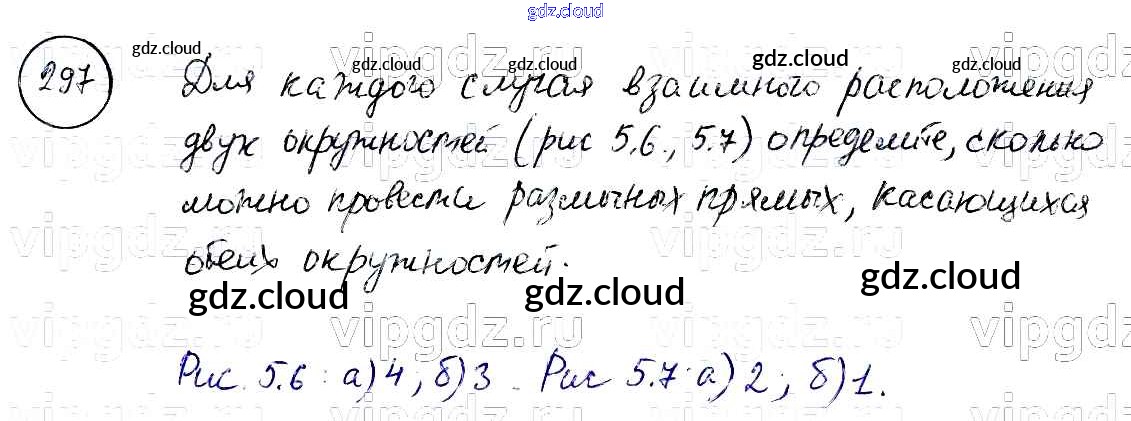 gdz.cloud
297
gdz.cloud gdz.cloud gdz.cloud gdz.cloud
Для каждого случая взаимного расположения
двух окружностей (рис 5.6., 5.7) определите, сколько
можно провести различных прямых, касающихся
обеих окружностей.
gdz.cloud gdz.cloud gdz.cloud
vipgdz.ru vipgdz.ru vipgdz.ru
Рис. 5.6 : а) 4 ; б) 3 . Рис 5.7 : а) 2 ; б) 1.